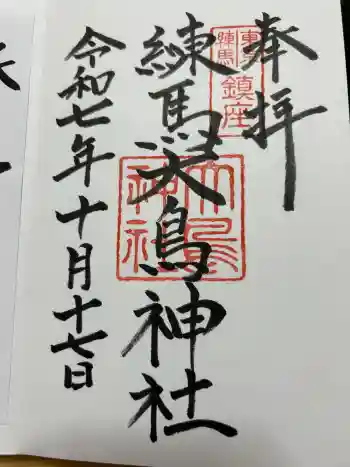 奉拝
東京
練馬
鎮座
練馬大鳥神社
大鳥
神社
令和七年十月十七日